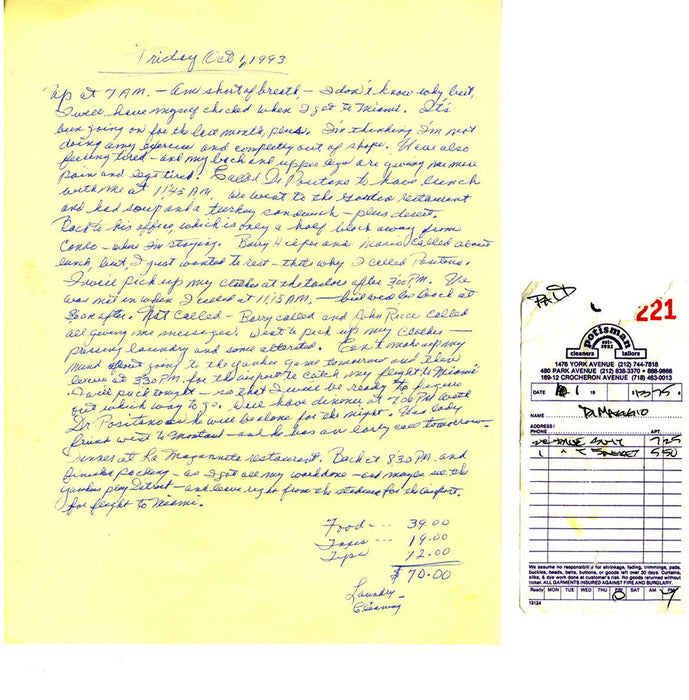 Friday Oct 1, 1993
Up at 7 AM. – Am short of breath – I don't know why but,
I will have myself checked when I get to Miami. It's
been going on for the last month, plus. I'm thinking I'm not
doing any exercise and completly out of shape. I've also
feeling tired – and my back and upper legs are giving me more
pain and legs tired. Called Dr Positano to have lunch
with me at 11:45 AM. We went to the restaurant
and had soup and a turkey sandwich – plus desert.
Back to his office, which is only a half block away from
Condo – where I'm staying. Barry Halper and Mario called about
lunch, but, I just wanted to rest – thats why I called Positano.
I will pick up my clothes at the tailors after 3:00 P.M. He
was not in when I called at 11:15 A.M. – but would be back at
3:00 or after. Nat Called – Barry called and called
all giving me messages. Went to pick up my clothes –
pressing laundry and some altered. Can't make up my
mind about going to the Yankee Game tomorrow and then
leave at 3:30 P.M. for the airport to catch my flight to Miami.
I will pack tonight – so that I will be ready to figure
out which way to go. Will have dinner at 7:00 P.M. with
Dr. Positano as he will be alone for the night. His lady
friend went to Montauk – and he has an early call tomorrow.
Dinner at La Maganette restaurant. Back at 8:30 P.M. and
finished packing – as I got all my work done – and maybe see the
Yankees play Detroit – and leave right from the stadium for the airport.
for flight to Miami.
Food --- 39.00
Taxis -- 19.00
Tips 12.00
$70.00
Laundry –
Cleaning
PAID
221
potisman
est. 1921
cleaners tailors
1476 YORK AVENUE (212) 744-7818
480 PARK AVENUE (212) 838-3370 • 888-9866
169-12 CROCHERON AVENUE (718) 463-0013
DATE 1 19
NAME DiMaggio
ADDRESS/
PHONE APT.
SUIT 725
1 550
We assume no responsibility for shrinkage, fading, trimmings, pads,
buckles, beads, belts, buttons, or goods left over 30 days. Curtains,
silks, & dye work done at customer's risk. No goods returned without
ticket. ALL GARMENTS INSURED AGAINST FIRE AND BURGLARY.
Ready MON TUE WED THU FRI SAT AM PM
13124